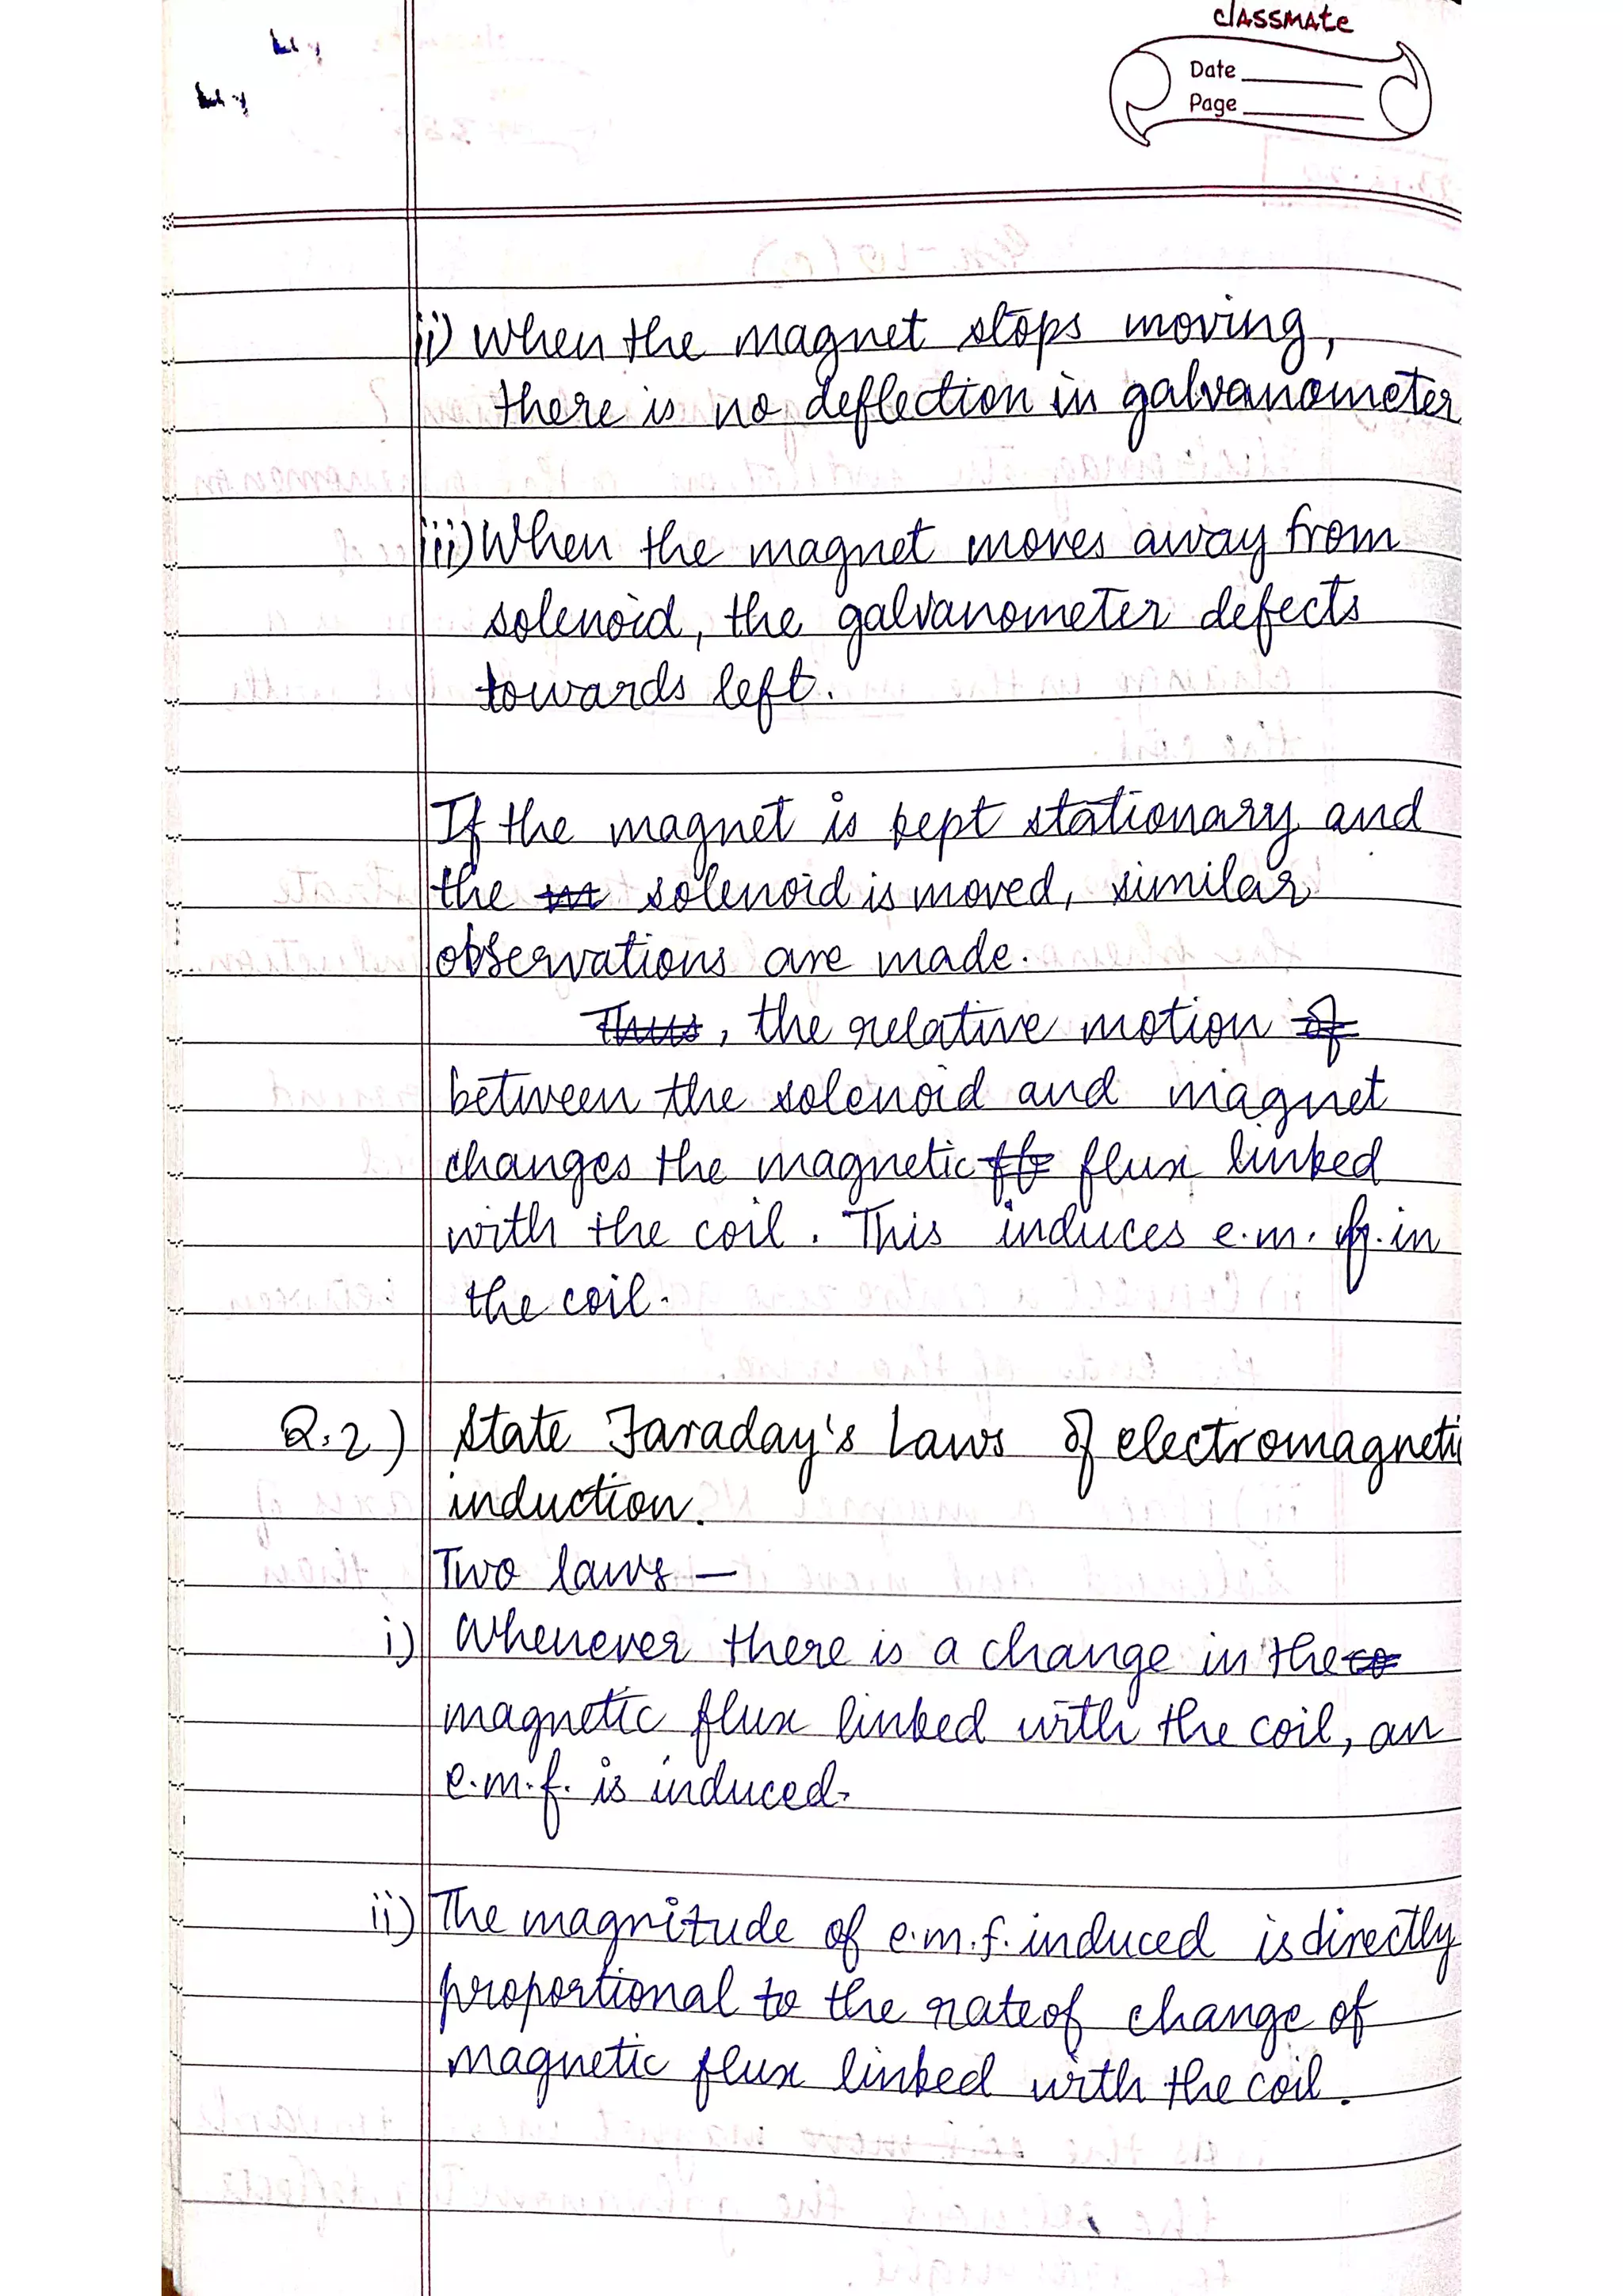 classmate
Date
Page
ii) When the magnet stops moving,
there is no deflection in galvanometer
iii) When the magnet moves away from
solenoid, the galvanometer defects
towards left.
If the magnet is kept stationary and
the solenoid is moved, similar
observations are made.
Thus, the relative motion of
between the solenoid and magnet
changes the magnetic flux linked
with the coil. This induces e.m.f. in
the coil.
Q.2) State Faraday's Laws of electromagneti
induction.
Two laws —
i) Whenever there is a change in the
magnetic flux linked with the coil, an
e.m.f. is induced.
ii) The magnitude of e.m.f. induced is directly
proportional to the rate of change of
magnetic flux linked with the coil.